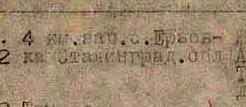 . 4 км.зап.с.Ерзов-
2 ка Сталинград.обл